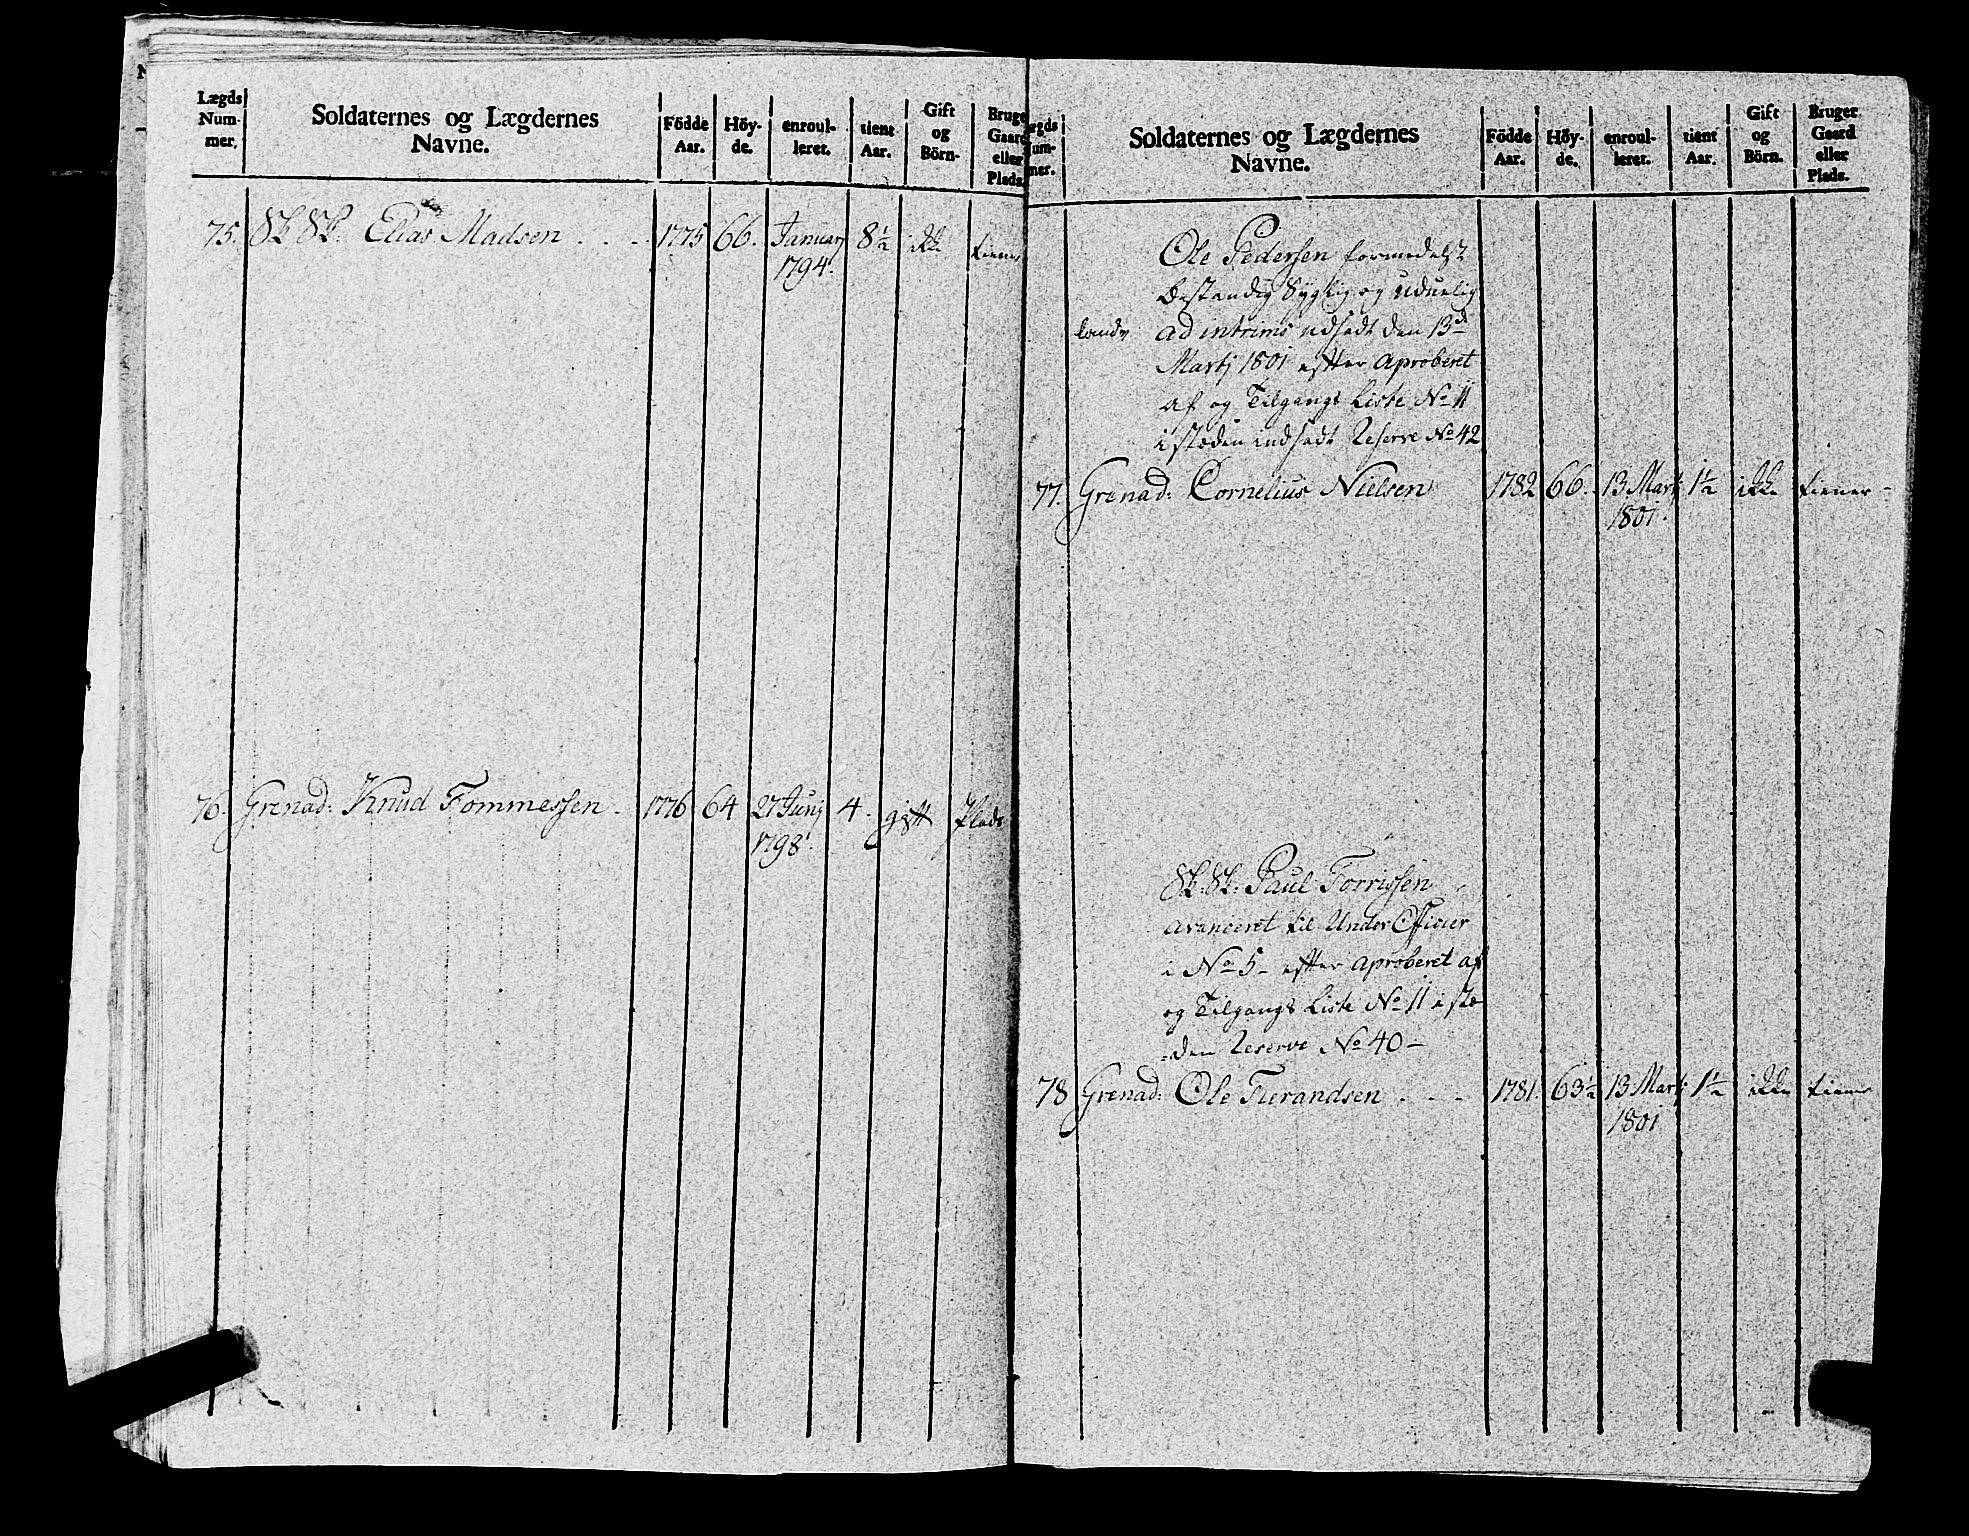 Lægds Num- mer. Soldaternes og Lægdernes Navne. Födde Aar. Höy- de. enroul- leret. tient Aar. Gift og Börn. Bruge Gaard eller Plads.
75. Sk: Sk: Elias Madsen . . . 1775 66. Januarj 8½ ikke tiener
1794.
76. Grenad: Knud Tommessen . 1776 64 27 Junj 4. gift Plads
1798.
ægds um- ner. Soldaternes og Lægdernes Navne. Födde Aar. Höy- de. enroul- leret. tient Aar. Gift og Börn. Bruger Gaard eller Plads.
Ole Pedersen formedelst
bestandig Syglig og uduelig
ad intrims udsadt den 13de
Martj 1801 efter Aproberet
af og Tilgangs Liste No 11
i stæden indsadt Reserve No 42
77. Grenad: Cornelius Nielsen 1782 66. 13 Martj 1½ ikke tiener -
1801.
Sk: Sk: Paul Torrissen
avanceret til Under Officier
i No 5 - efter Aproberet af
og Tilgangs Liste No 11 i stæ
=den Reserve No 40 -
78 Grenad: Ole Tierandsen . - - 1781. 63½ 13 Martj 1½ ikke tiener
1801